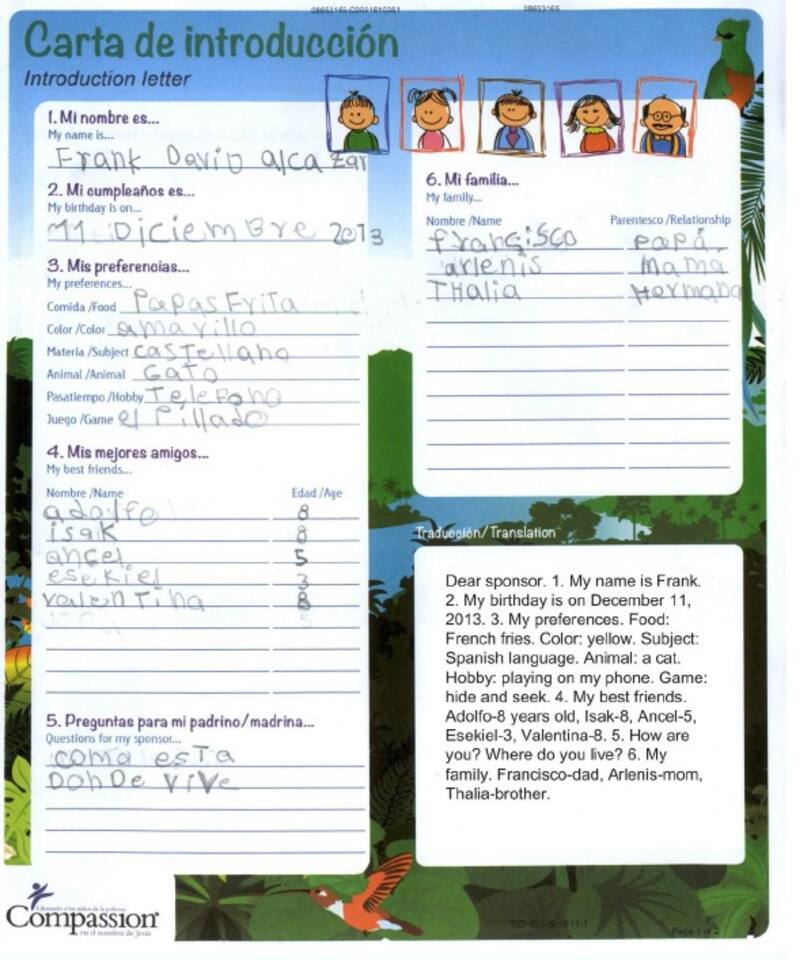 Carta de introducción
Introduction letter
1. Mi nombre es...
My name is...
Frank David alcazar
2. Mi cumpleaños es...
My birthday is on...
11 Diciembre 2013
3. Mis preferencias...
My preferences...
Comida /Food Papas Frita
Color /Color amarillo
Materia /Subject castellano
Animal /Animal Gato
Pasatiempo /Hobby Telefono
Juego /Game el Pillado
4. Mis mejores amigos...
My best friends...
Nombre /Name Edad /Age
adolfo 8
isak 8
ancel 5
esekiel 3
valentina 8
5. Preguntas para mi padrino/madrina...
Questions for my sponsor...
como esta
DonDe vive
6. Mi familia...
My family...
Nombre /Name Parentesco /Relationship
francisco papá
arlenis Mama
THalia Hermana
Traducción/Translation
Dear sponsor. 1. My name is Frank.
2. My birthday is on December 11,
2013. 3. My preferences. Food:
French fries. Color: yellow. Subject:
Spanish language. Animal: a cat.
Hobby: playing on my phone. Game:
hide and seek. 4. My best friends.
Adolfo-8 years old, Isak-8, Ancel-5,
Esekiel-3, Valentina-8. 5. How are
you? Where do you live? 6. My
family. Francisco-dad, Arlenis-mom,
Thalia-brother.
Compassion
en el nombre de Jesús
Page 1 of 2